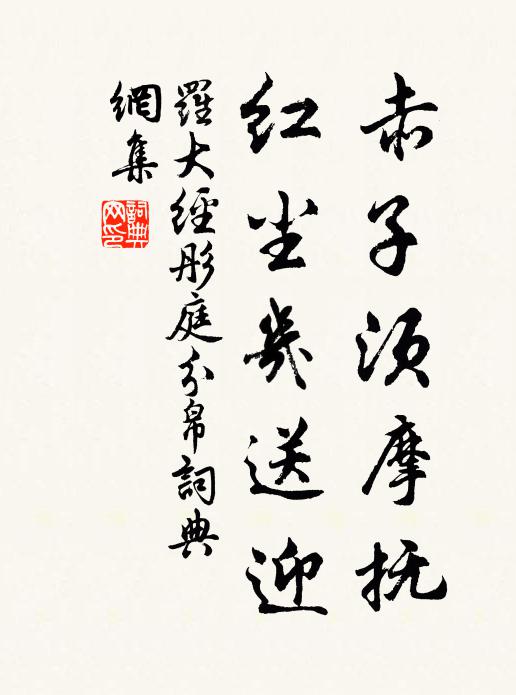 赤子须摩抚
红尘几送迎
羅大經彤庭分帛詞典
網集
詞典网印